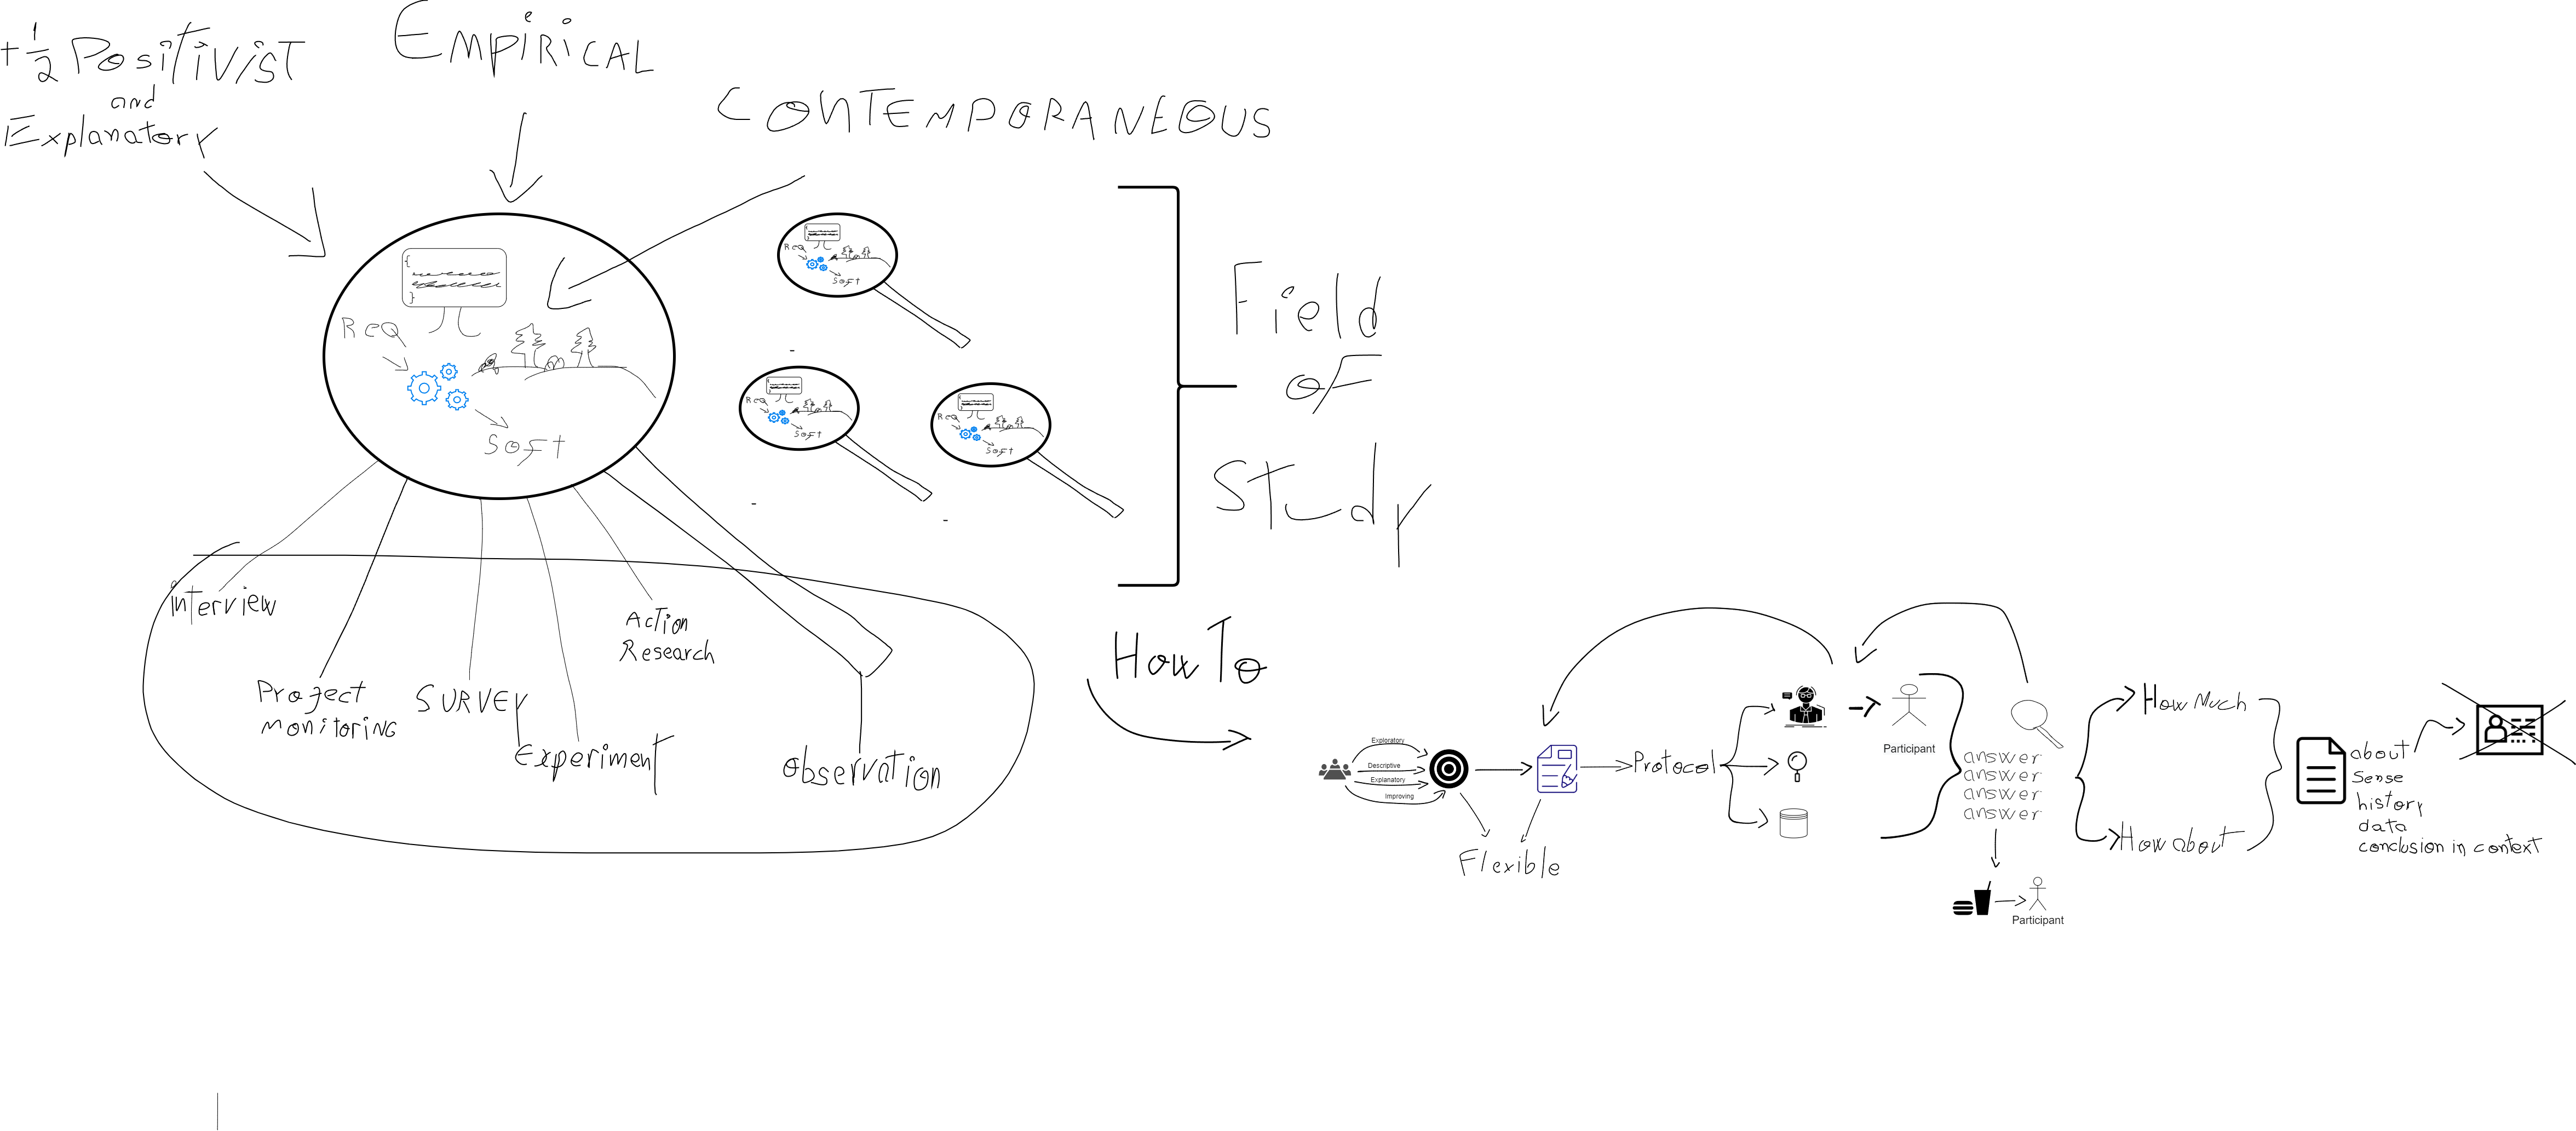 +½ Positivist
and
Explanatory
EMPiRiCAL
CONTEMPORANEOUS
{
}
Req
Soft
Req
Soft
Req
Soft
Req
Soft
Field
of
Study
interview
Project
monitoring
SURVEY
Experiment
Action
Research
observation
How To
Exploratory
Descriptive
Explanatory
Improving
Flexible
Protocol
Participant
answer
answer
answer
answer
Participant
How Much
How about
about
Sense
history
data
conclusion in context